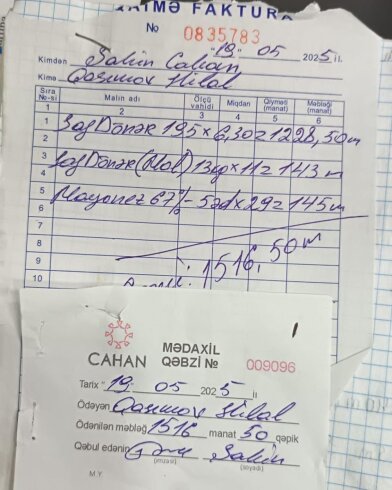 QAİMƏ FAKTURA
№ 0835783
"19" 05 2025 il.
Kimdən Şahin Cahan
Kimə Qasımov Hilal
Sıra №-si Malın adı Ölçü vahidi Miqdarı Qiyməti (manat) Məbləği (manat)
1 2 3 4 5 6
1 DÖNƏR 195 × 6,30 = 1228,50 m
2
3 DÖNƏR (Mal) 13 kq × 11 = 143 m
4
5 Mayonez 67% - 5 əd × 29 = 145 m
6
7
8 1516,50 m
9
10
CAHAN
MƏDAXİL QƏBZİ № 009096
Tarix "19" 05 2025 il
Ödəyən Qasımov Hilal
Ödənilən məbləğ 1516 manat 50 qəpik
Qəbul edənin Şahin
(imzası) (soyadı)
M.Y.